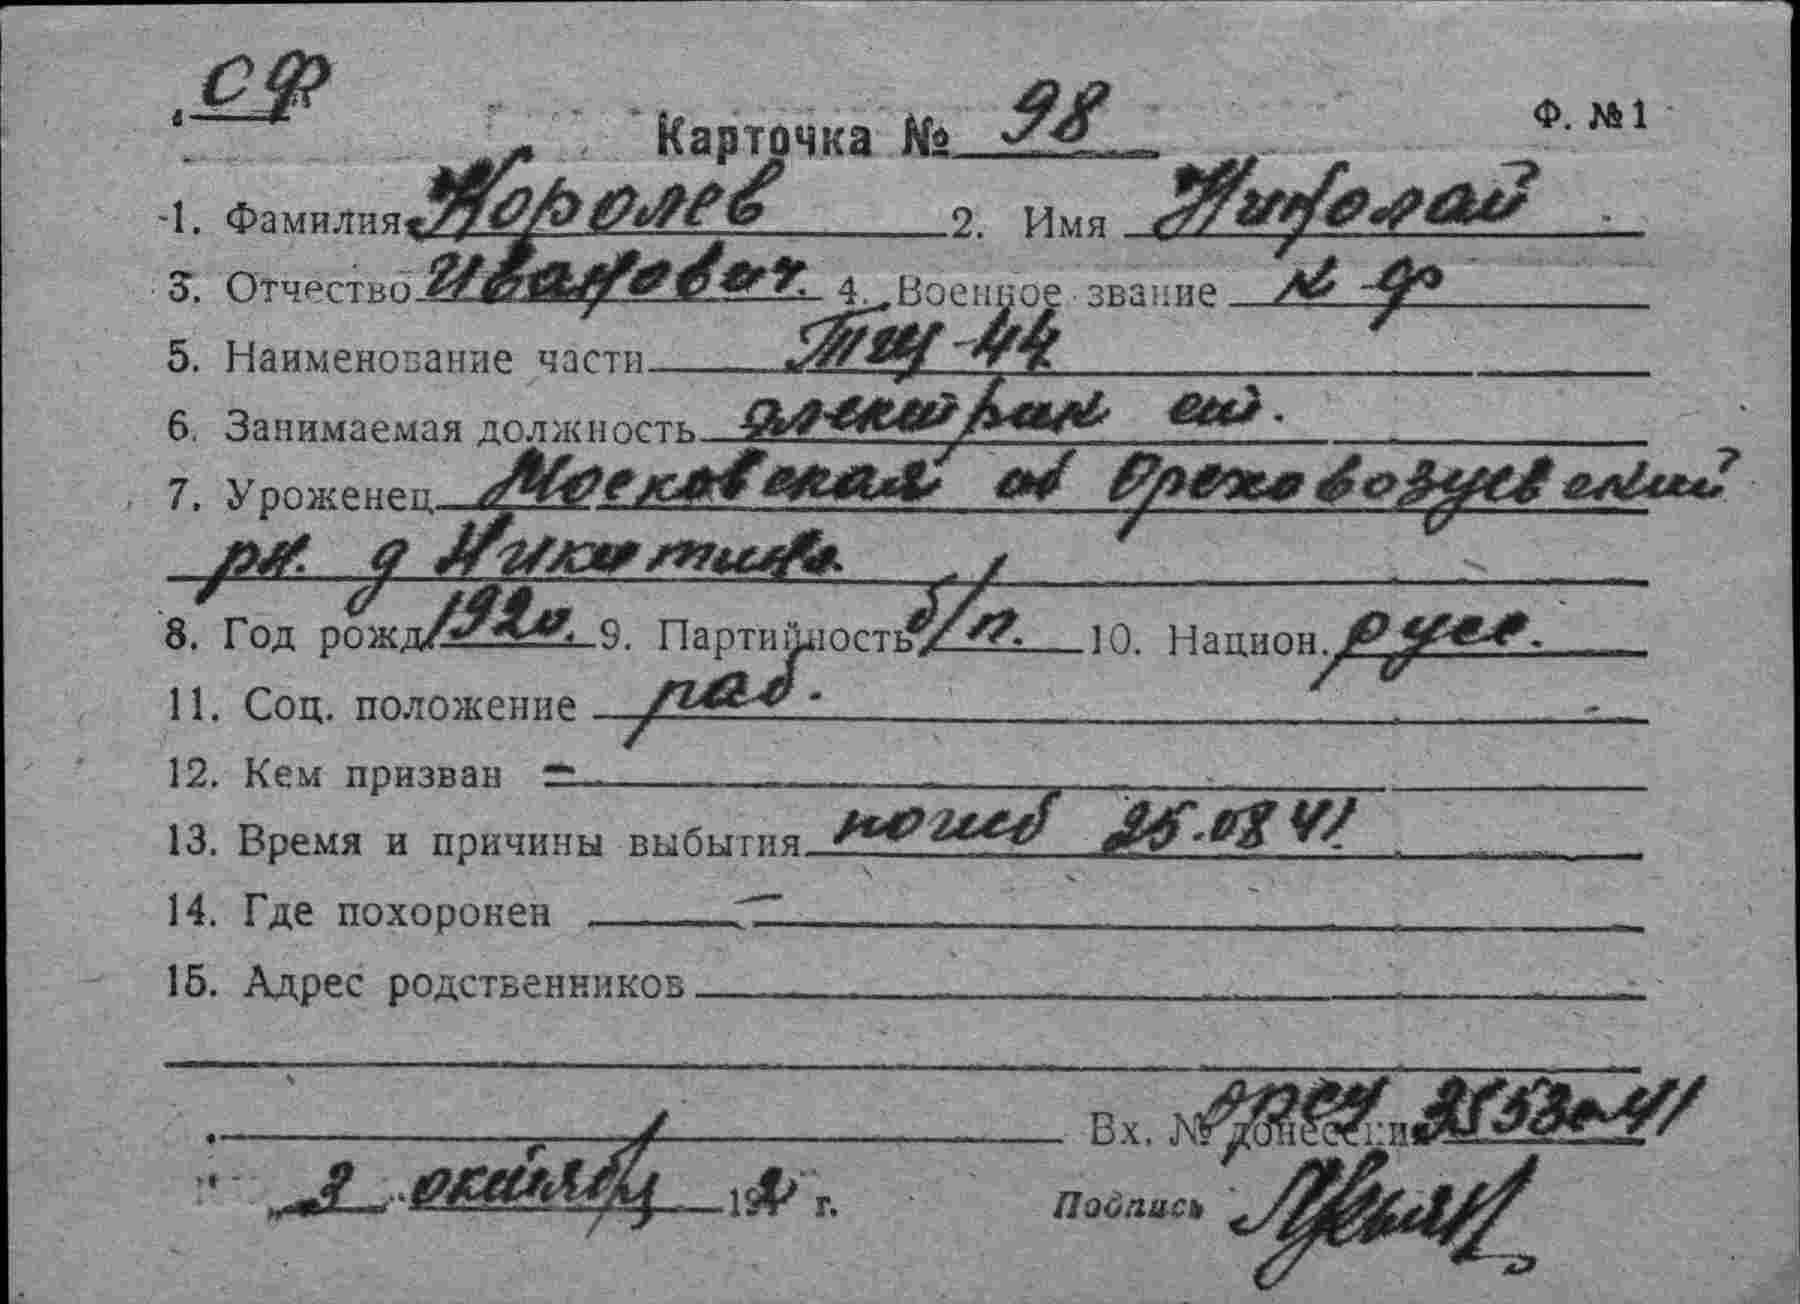 СФ
Карточка № 98 Ф. №1
1. Фамилия Королев 2. Имя Николай
3. Отчество Иванович. 4. Военное звание к ф
5. Наименование части Тщ-44
6. Занимаемая должность электрик ст.
7. Уроженец Московская об Ореховозуевский
рн. д Никитино.
8. Год рожд. 1920. 9. Партийность б/п. 10. Национ. русс.
11. Соц. положение раб.
12. Кем призван –
13. Время и причины выбытия погиб 25.08 41
14. Где похоронен –
15. Адрес родственников
Вх. № донесения
октября 19 г. Подпись